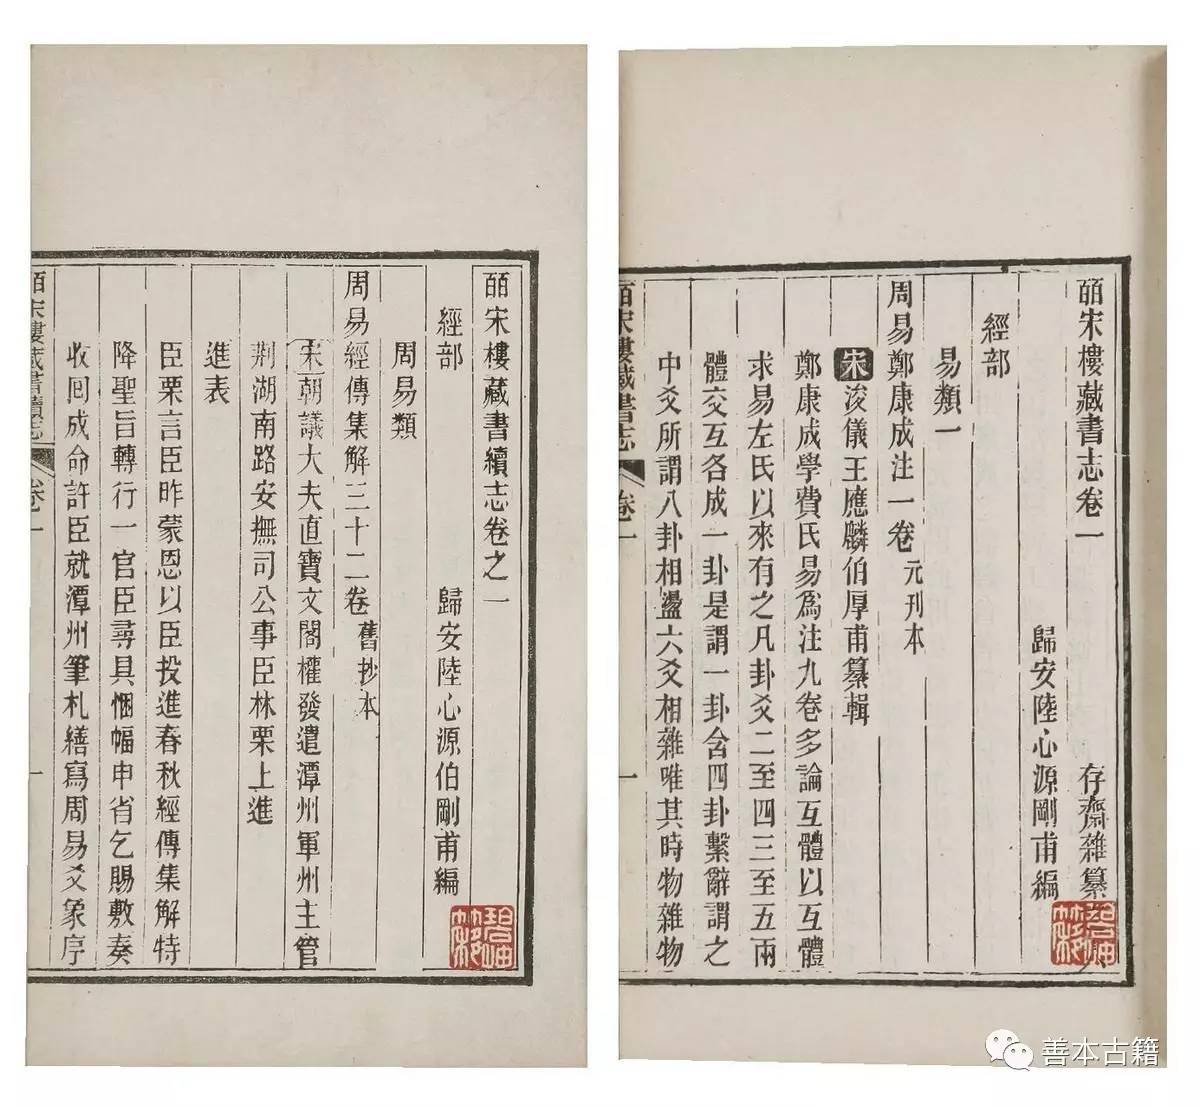 皕宋樓藏書志卷一
存齋雜纂
歸安陸心源剛甫編
經部
易類一
周易鄭康成注一卷 元刊本
宋浚儀王應麟伯厚甫纂輯
鄭康成學費氏易爲注九卷多論互體以互體
求易左氏以來有之凡卦爻二至四三至五兩
體交互各成一卦是謂一卦含四卦繫辭謂之
中爻所謂八卦相盪六爻相雜唯其時物雜物
皕宋樓藏書志 卷一 一
皕宋樓藏書續志卷之一
歸安陸心源伯剛甫編
經部
周易類
周易經傳集解三十二卷 舊抄本
宋朝議大夫直寶文閣權發遣潭州軍州主管
荆湖南路安撫司公事臣林栗上進
進表
臣栗言臣昨蒙恩以臣投進春秋經傳集解特
降聖旨轉行一官臣尋具悃愊申省乞賜敷奏
收回成命許臣就潭州筆札繕寫周易爻象序
皕宋樓藏書續志 卷一 一
善本古籍